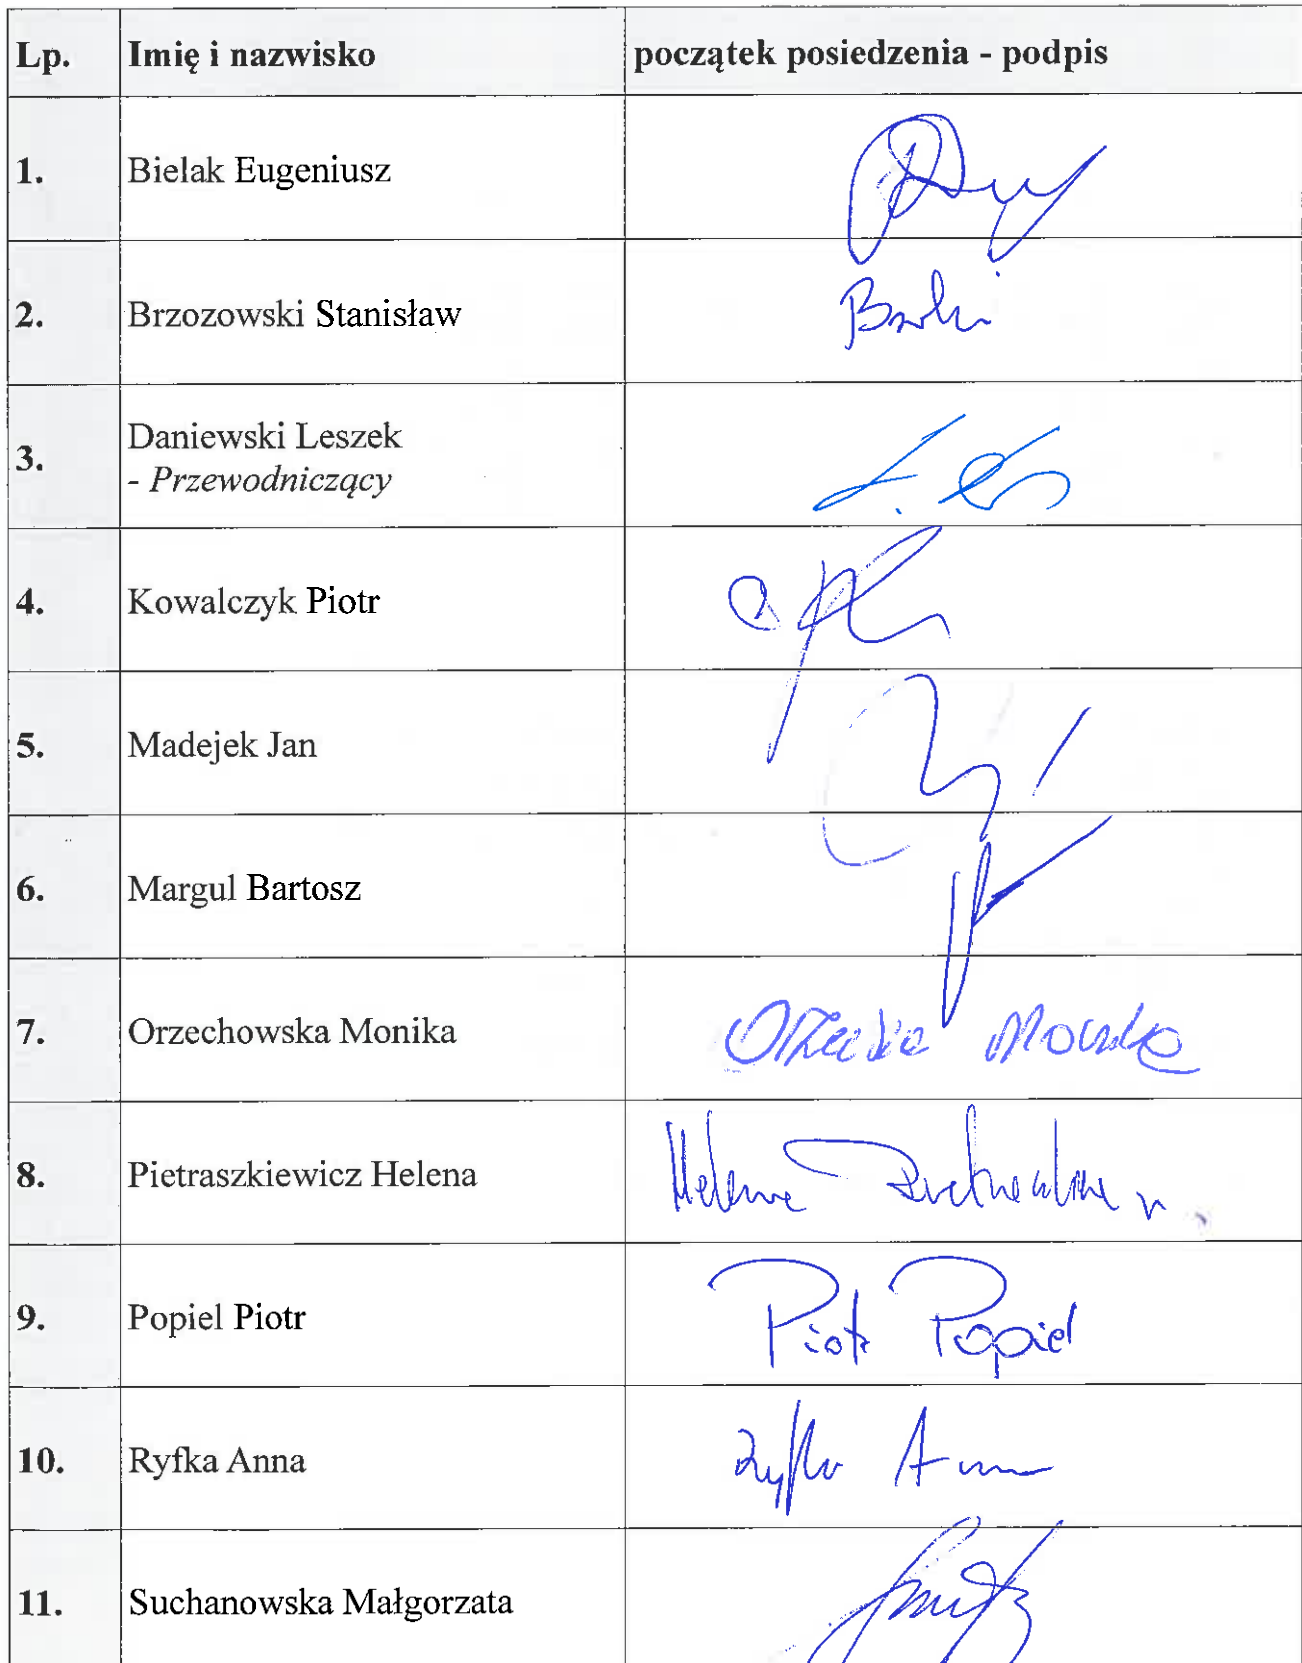 Lp. Imię i nazwisko początek posiedzenia - podpis
1. Bielak Eugeniusz
2. Brzozowski Stanisław
3. Daniewski Leszek
- Przewodniczący
4. Kowalczyk Piotr
5. Madejek Jan
6. Margul Bartosz
7. Orzechowska Monika
8. Pietraszkiewicz Helena Helena
9. Popiel Piotr Piotr Popiel
10. Ryfka Anna Ryfka Anna
11. Suchanowska Małgorzata